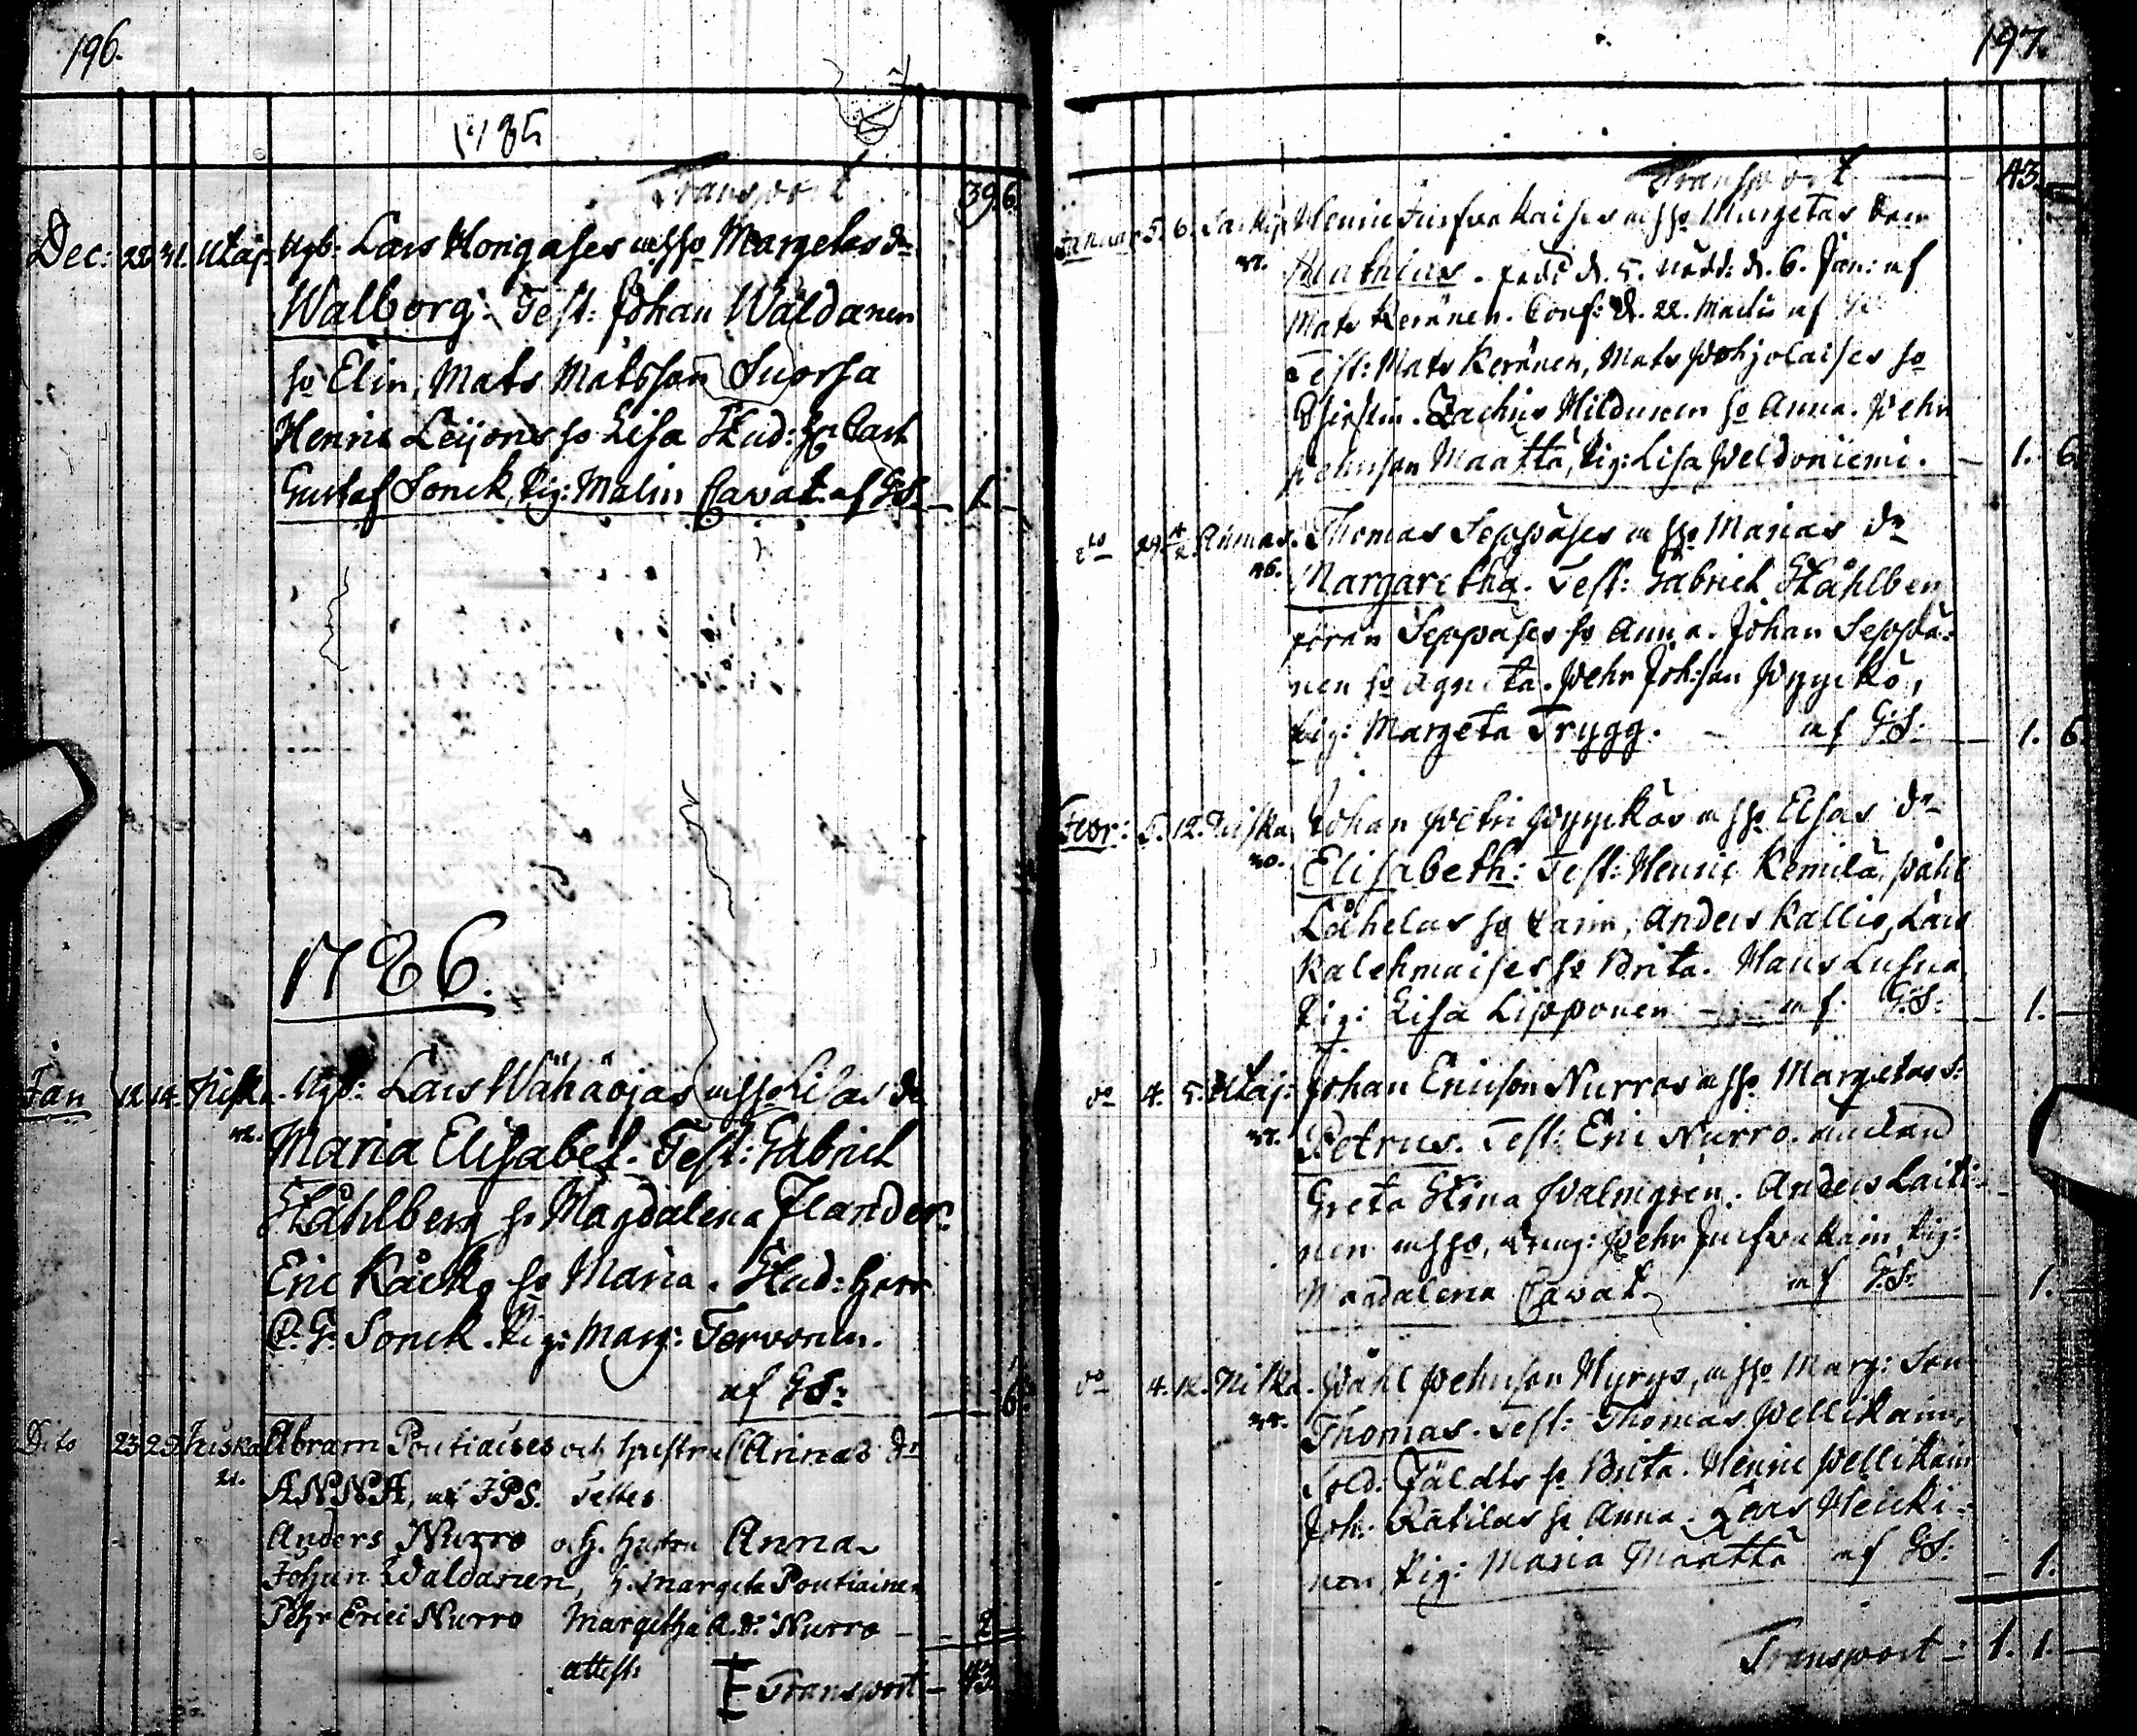 196.
1785
Transport 39. 6.
Dec: 28 31. Utaj: Nyb: Lars Hongases och ho Margetas dr
Walborg. Test: Johan Wäldanen
ho Elin, Mats Matsson Suorsa
Henric Leijons ho Lisa Stud: Hr Carl
Gustaf Sonck, Pig: Malin Cavat. af GS. 1. –
1786.
Jan 12 14. Niska. Nyb: Lars Wähäojas och ho Lisas dr
Maria Elisabet. Test: Gabriel
Ståhlberg ho Magdalena Flander:
Eric Kåcko ho Maria. Stud: Herr
C. G. Sonck. Pig: Marg: Tervonen.
af GS: 6.
Dito 23 29 Niska Abram Pontiaises och hustru Annas dr
21.
ANNA, af JPS. Testes
Anders Nurro och h. hustru Anna
Johan Waldanen, h. Margeta Pontiainen
Pehr Erici Nurro Margetha A. dr. Nurro – 2
attest:
Transport – 43
197.
Transport 43.
Januar 5. 6. Henric Juesvakaises och ho Margetas Son
37.
Mathias. född d. 5. nöddr: d. 6. Jan: af
Mats Keränen. Conf: d. 22. Martii af
Test: Mats Keränen, Mats Pohjolaises ho
Chirstin. Zachris Hildunen ho Anna. Pehr
Pehrsson Määttä, Pig: Lisa Peldoniemi. – 1. 6.
dito 29 4/2 Ahmas. Thomas Seppäses och ho Marias dr
26.
Margaretha. Test: Gabriel Ståhlberg
Jöran Seppäses ho Anna. Johan Seppä-
nen ho Agneta. Pehr Joh:son Pyyckö,
Pig: Margeta Trygg. – af G.S. – 1. 6.
Febr: 5. 12. Niska Johan Petri Pyyckös och ho Elsas dr
30.
Elisabeth: Test: Henric Kemilä, Påhl
Lähelas ho Carin, Anders Kallio, Lars
Kalehmaises ho Brita. Hans Lusua,
Pig: Lisa Lipponen – af G.S: – 1. –
do 4. 5. Utaj: Johan Ericsson Nurros och ho Margetas s:
37.
Petrus. Test: Eric Nurro.
Greta Stina Palmgren. Anders Laiti-
nen och ho, dreng: Pehr Juesvakain, Pig:
Magdalena Cavat. af G.S: – 1. –
do 4. 12. Niska. Påhl Pehrsson Hyrys, och ho Marg: Son
Thomas. Test: Thomas Pellikain,
Sold: Fäldts ho Brita. Henric Pellikain
Joh: Rätilas ho Anna. Lars Heicki-
nen, Pig: Maria Määttä af GS: – 1.
Transport – 1. 1. –